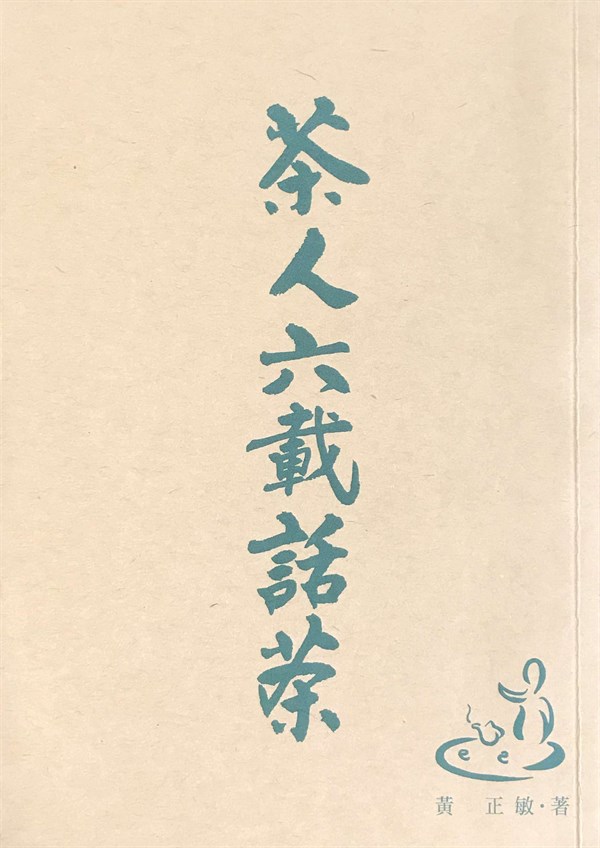 茶人六載話茶
黃 正敏·著